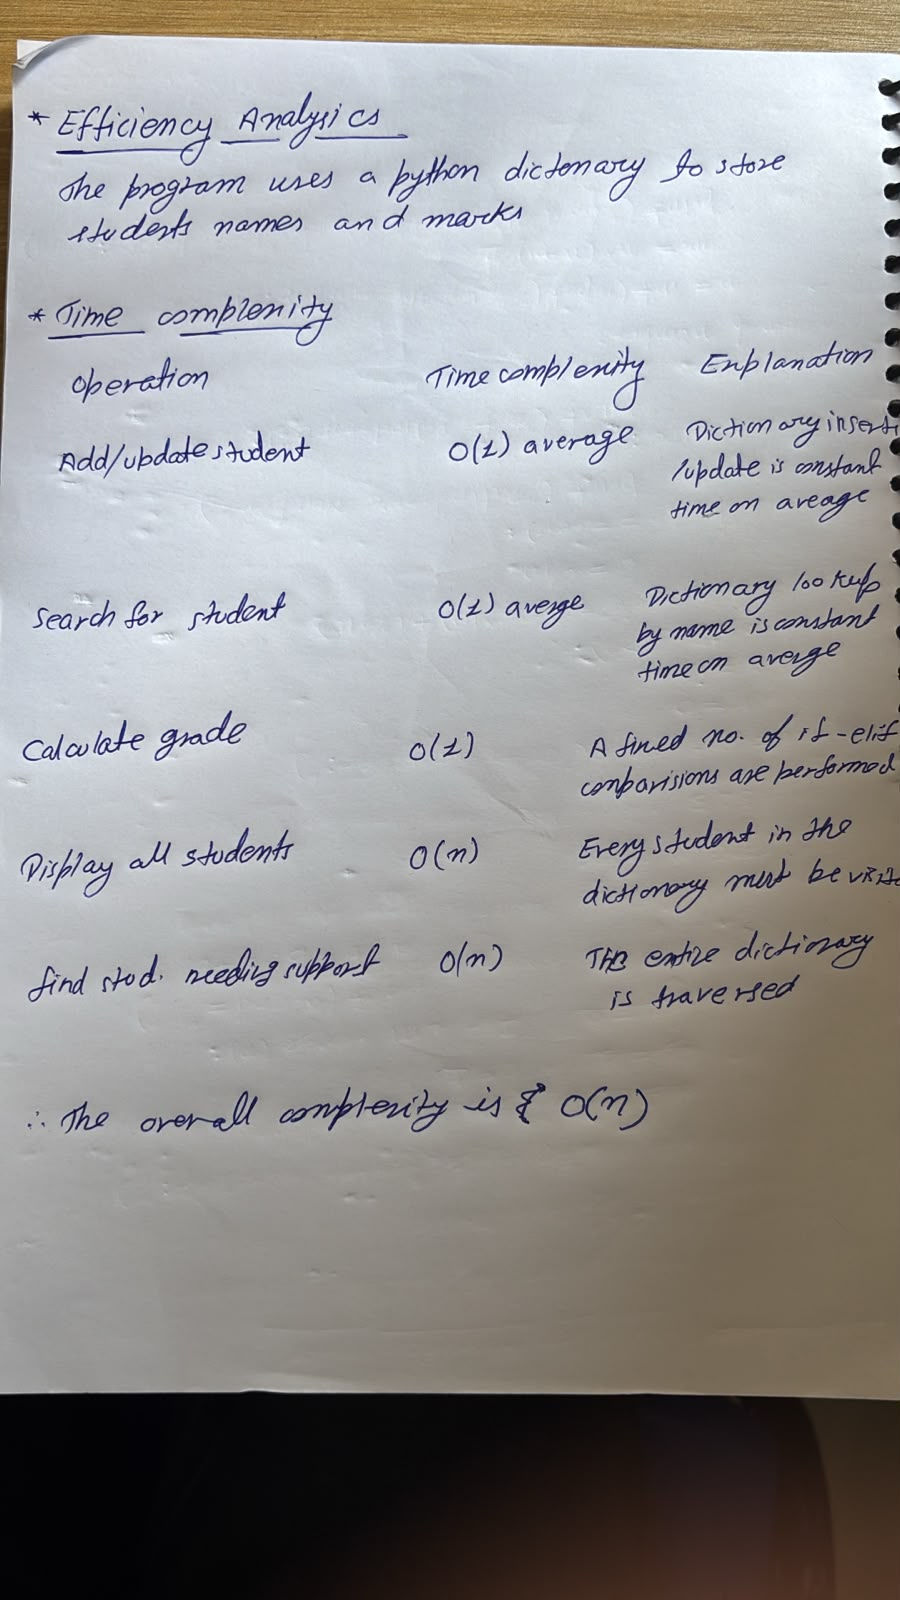 * Efficiency Analysics
The program uses a python dictonary to store
students names and marks
* Time complexity
Operation Time complexity Explanation
Add/update student O(1) average Dictionary inserti
/update is constant
time on aveage
Search for student O(1) averge Dictionary lookup
by name is constant
time on averge
Calculate grade O(1) A fixed no. of if-elif
comparisions are performed
Display all students O(n) Every student in the
dictionary must be visite
find stud. needing support O(n) The entire dictionary
is traversed
∴ The overall complexity is O(n)